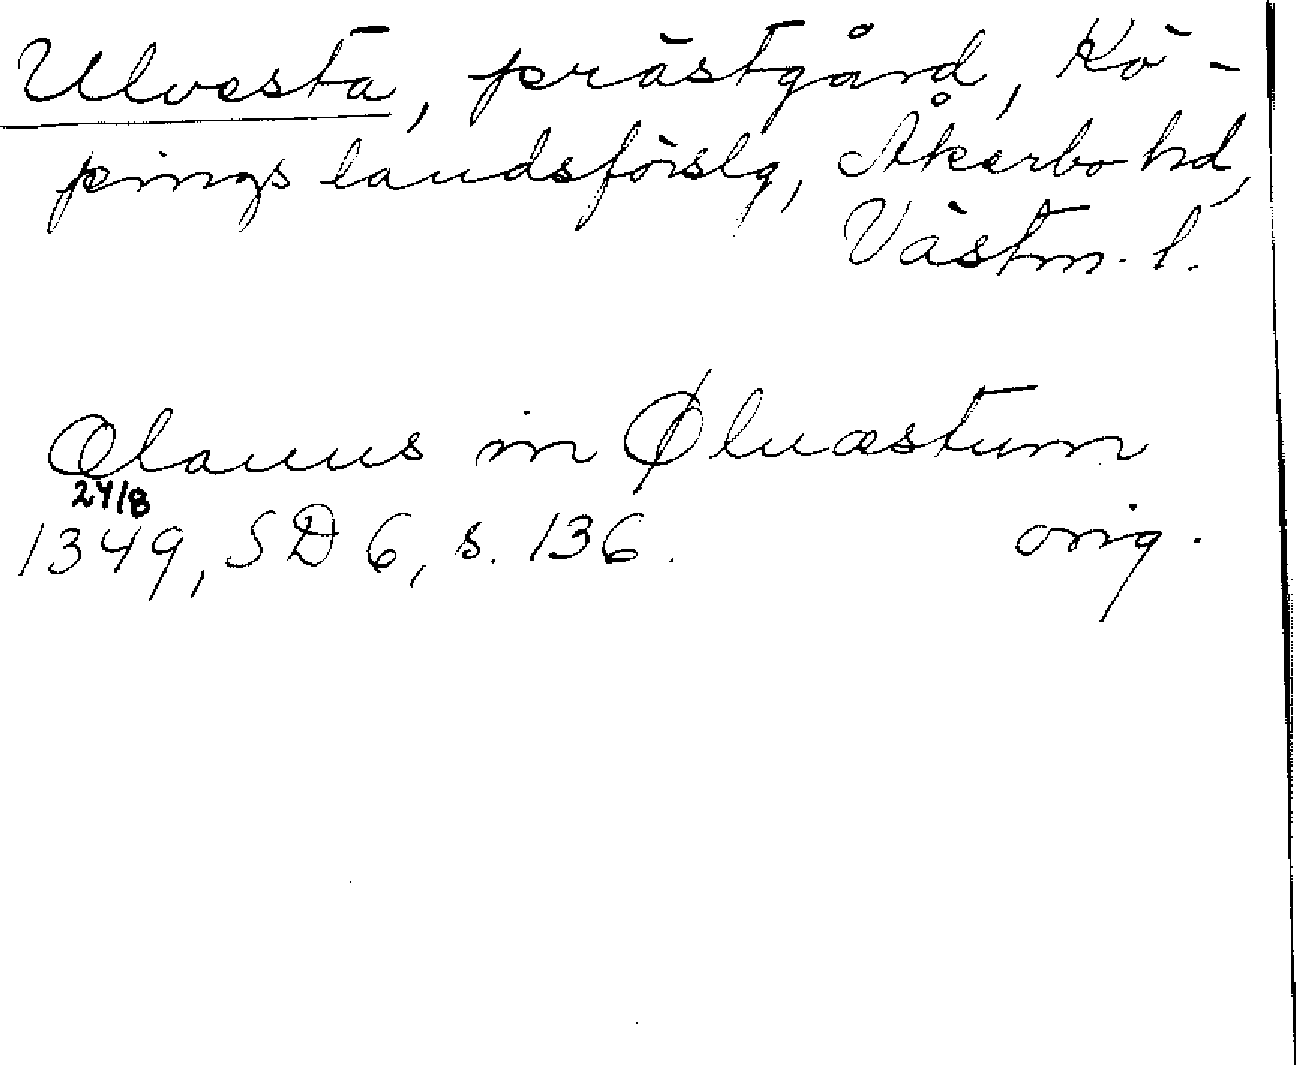 Ulvesta, prästgård, Kö-
pings landsförslg, Åkerbo hd,
Västm. l.
Olauus in Øluæstum
24/8
1349, SD 6, s. 136. orig.